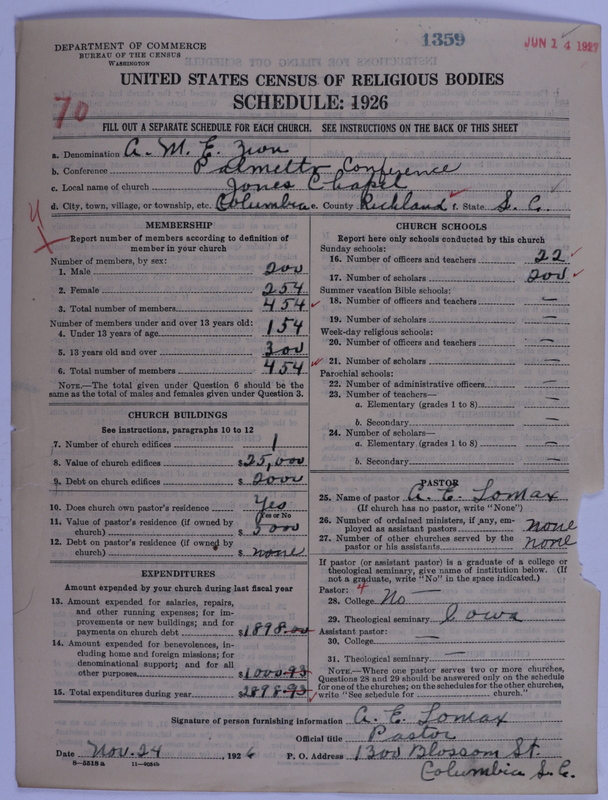 1359
JUN 14 1927
DEPARTMENT OF COMMERCE
BUREAU OF THE CENSUS
WASHINGTON
UNITED STATES CENSUS OF RELIGIOUS BODIES
SCHEDULE: 1926
70
FILL OUT A SEPARATE SCHEDULE FOR EACH CHURCH. SEE INSTRUCTIONS ON THE BACK OF THIS SHEET
a. Denomination A. M. E. Zion
b. Conference Palmetto Conference
c. Local name of church Jones Chapel
d. City, town, village, or township, etc. Columbia e. County Richland f. State S. C.
MEMBERSHIP
Report number of members according to definition of
member in your church
Number of members, by sex:
1. Male 200
2. Female 254
3. Total number of members 454
Number of members under and over 13 years old:
4. Under 13 years of age 154
5. 13 years old and over 300
6. Total number of members 454
NOTE.—The total given under Question 6 should be the
same as the total of males and females given under Question 3.
CHURCH BUILDINGS
See instructions, paragraphs 10 to 12
7. Number of church edifices 1
8. Value of church edifices $25,000
9. Debt on church edifices $2000
10. Does church own pastor's residence Yes
Yes or No
11. Value of pastor's residence (if owned by
church) $3000
12. Debt on pastor's residence (if owned by
church) $none
EXPENDITURES
Amount expended by church during last fiscal year
13. Amount expended for salaries, repairs,
and other running expenses; for im-
provements or new buildings; and for
payments on church debt $1898.00
14. Amount expended for benevolences, in-
cluding home and foreign missions; for
denominational support; and for all
other purposes $1000.93
15. Total expenditures during year $2898.93
CHURCH SCHOOLS
Report here only schools conducted by this church
Sunday schools:
16. Number of officers and teachers 22
17. Number of scholars 200
Summer vacation Bible schools:
18. Number of officers and teachers —
19. Number of scholars —
Week-day religious schools:
20. Number of officers and teachers —
21. Number of scholars —
Parochial schools:
22. Number of administrative officers —
23. Number of teachers—
a. Elementary (grades 1 to 8) —
b. Secondary —
24. Number of scholars—
a. Elementary (grades 1 to 8) —
b. Secondary —
PASTOR
25. Name of pastor A. E. Lomax
(If church has no pastor, write "None")
26. Number of ordained ministers, if any, em-
ployed as assistant pastors none
27. Number of other churches served by the
pastor or his assistants none
If pastor (or assistant pastor) is a graduate of a college or
theological seminary, give name of institution below. (If
not a graduate, write "No" in the space indicated.)
Pastor: 4
28. College No —
29. Theological seminary Iowa
Assistant pastor:
30. College —
31. Theological seminary —
NOTE.—Where one pastor serves two or more churches,
Questions 28 and 29 should be answered only on the schedule
for one of the churches; on the schedules for the other churches,
write "See schedule for church."
Signature of person furnishing information A. E. Lomax
Official title Pastor
Date Nov. 24, 1926 P. O. Address 1300 Blossom St.
Columbia S. C.
8—5518 a